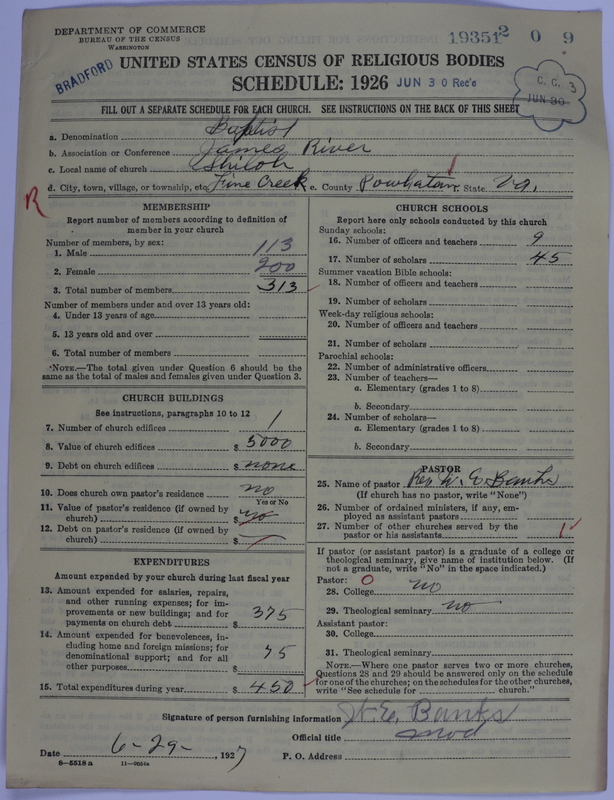 DEPARTMENT OF COMMERCE
BUREAU OF THE CENSUS
WASHINGTON
193512 0 9
BRADFORD
UNITED STATES CENSUS OF RELIGIOUS BODIES
SCHEDULE: 1926 JUN 30 Rec'd
C. C. 3
JUN 30
FILL OUT A SEPARATE SCHEDULE FOR EACH CHURCH. SEE INSTRUCTIONS ON THE BACK OF THIS SHEET
a. Denomination Baptist
b. Association or Conference James River
c. Local name of church Shiloh
d. City, town, village, or township, etc. Fine Creek e. County Powhatan State Va.
R
MEMBERSHIP
Report number of members according to definition of
member in your church
Number of members, by sex:
1. Male 113
2. Female 200
3. Total number of members 313
Number of members under and over 13 years old:
4. Under 13 years of age
5. 13 years old and over
6. Total number of members
NOTE.—The total given under Question 6 should be the
same as the total of males and females given under Question 3.
CHURCH BUILDINGS
See instructions, paragraphs 10 to 12
7. Number of church edifices 1
8. Value of church edifices $ 5000
9. Debt on church edifices $ none
10. Does church own pastor's residence no
Yes or No
11. Value of pastor's residence (if owned by
church) $ no
12. Debt on pastor's residence (if owned by
church) $
EXPENDITURES
Amount expended by your church during last fiscal year
13. Amount expended for salaries, repairs,
and other running expenses; for im-
provements or new buildings; and for
payments on church debt $ 375
14. Amount expended for benevolences, in-
cluding home and foreign missions; for
denominational support; and for all
other purposes $ 75
15. Total expenditures during year $ 450
CHURCH SCHOOLS
Report here only schools conducted by this church
Sunday schools:
16. Number of officers and teachers 9
17. Number of scholars 45
Summer vacation Bible schools:
18. Number of officers and teachers
19. Number of scholars
Week-day religious schools:
20. Number of officers and teachers
21. Number of scholars
Parochial schools:
22. Number of administrative officers
23. Number of teachers—
a. Elementary (grades 1 to 8)
b. Secondary
24. Number of scholars—
a. Elementary (grades 1 to 8)
b. Secondary
PASTOR
25. Name of pastor Rev. W. E. Banks
(If church has no pastor, write "None")
26. Number of ordained ministers, if any, em-
ployed as assistant pastors
27. Number of other churches served by the
pastor or his assistants 1
If pastor (or assistant pastor) is a graduate of a college or
theological seminary, give name of institution below. (If
not a graduate, write "No" in the space indicated.)
Pastor: O
28. College no
29. Theological seminary no
Assistant pastor:
30. College
31. Theological seminary
NOTE.—Where one pastor serves two or more churches,
Questions 28 and 29 should be answered only on the schedule
for one of the churches; on the schedules for the other churches,
write "See schedule for church."
Signature of person furnishing information W. E. Banks
Official title mod
Date 6-29-, 1927 P. O. Address
8—5518 a 11—9054a